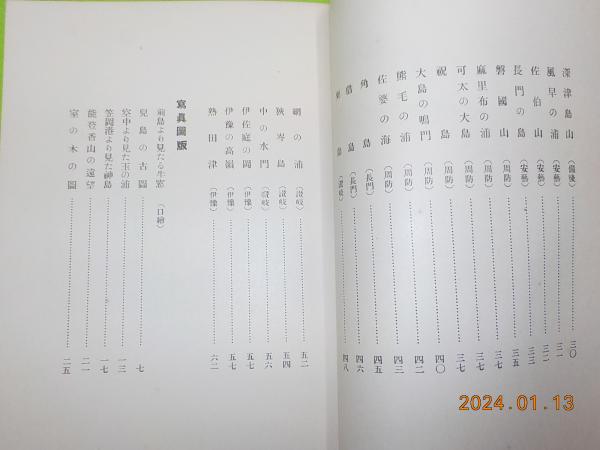 深津島山（備後）…三〇
風早の浦（安藝）…三一
佐伯山（安藝）…三二
長門の島（安藝）…三三
磐國山（周防）…三五
麻里布の浦（周防）…三七
可太の大島（周防）…三七
祝島（周防）…四〇
大島の鳴門（周防）…四二
熊毛の浦（周防）…四三
佐婆の海（周防）…四五
角島（長門）…四六
島（讃岐）…四八
網の浦（讃岐）…五二
狹岑島（讃岐）…五四
中の水門（讃岐）…五六
伊佐庭の岡（伊豫）…五七
伊豫の高嶺（伊豫）…五七
熟田津（伊豫）…六二
寫眞圖版
前島より見たる牛窓（口繪）
兒島の古圖…七
空中より見た玉の浦…一三
笠岡港より見た神島…一七
能登香山の遠望…二一
室の木の圖…二五
2024.01.13